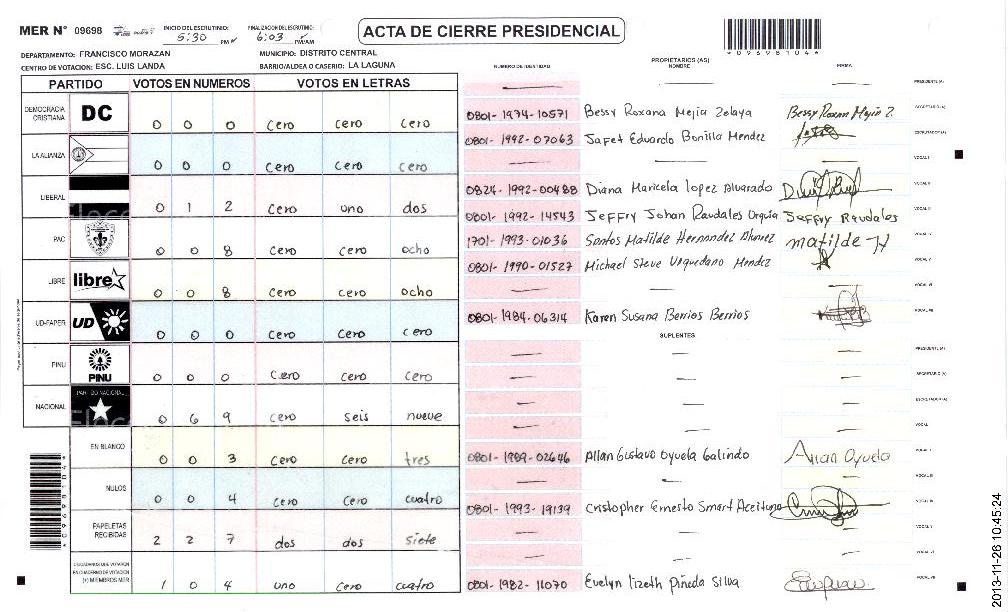 MER N° 09698
INICIO DEL ESCRUTINIO: 5:30 PM
FINALIZACION DEL ESCRUTINIO: 6:03 PM/AM
ACTA DE CIERRE PRESIDENCIAL
*09698104*
DEPARTAMENTO: FRANCISCO MORAZAN
MUNICIPIO: DISTRITO CENTRAL
CENTRO DE VOTACION: ESC. LUIS LANDA
BARRIO/ALDEA O CASERIO: LA LAGUNA
PARTIDO VOTOS EN NUMEROS VOTOS EN LETRAS
DEMOCRACIA CRISTIANA DC 0 0 0 cero cero cero
LA ALIANZA 0 0 0 cero cero cero
LIBERAL 0 1 2 cero uno dos
PAC 0 0 8 cero cero ocho
LIBRE libre 0 0 8 cero cero ocho
UD-FAPER UD 0 0 0 cero cero cero
PINU PINU 0 0 0 cero cero cero
NACIONAL PARTIDO NACIONAL 0 6 9 cero seis nueve
EN BLANCO 0 0 3 cero cero tres
NULOS 0 0 4 cero cero cuatro
PAPELETAS RECIBIDAS 2 2 7 dos dos siete
CIUDADANOS QUE VOTARON EN CUADERNO DE VOTACION (+) MIEMBROS MER 1 0 4 uno cero cuatro
*09698104*
PROPIETARIOS (AS)
NUMERO DE IDENTIDAD NOMBRE FIRMA
PRESIDENTE (A)
0801-1974-10571 Bessy Roxana Mejia Zelaya Bessy Roxan Mejia Z. SECRETARIO (A)
0801-1992-07063 Jafet Eduardo Bonilla Mendez ESCRUTADOR (A)
VOCAL I
0824-1992-00488 Diana Maricela Lopez Alvarado VOCAL II
0801-1992-14543 Jeffry Johan Raudales Urquia Jeffry Raudales VOCAL III
1701-1993-01036 Santos Matilde Hernandez Alvarez matilde H VOCAL IV
0801-1990-01527 Michael Steve Urquedano Mendez VOCAL V
VOCAL VI
0801-1984-06314 Karen Susana Berrios Berrios VOCAL VII
SUPLENTES
PRESIDENTE (A)
SECRETARIO (A)
ESCRUTADOR (A)
VOCAL I
0801-1989-02646 Allan Gustavo Oyuela Galindo Allan Oyuela
VOCAL III
0801-1993-19139 Cristopher Ernesto Smart Aceituno
VOCAL V
VOCAL VI
0801-1982-11070 Evelyn Lizeth Pineda Silva VOCAL VII
2013-11-26 10:45:24